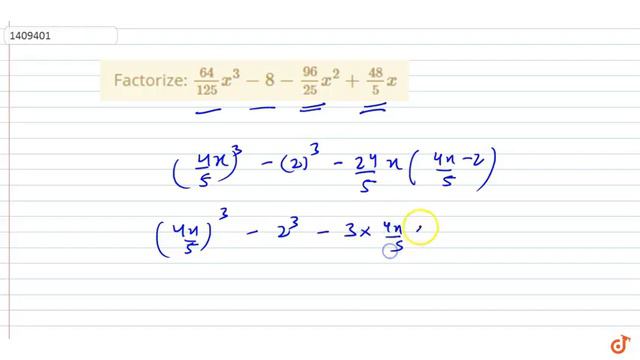 1409401
Factorize: 64/125 x³ − 8 − 96/25 x² + 48/5 x
(4x/5)³ − (2)³ − 24/5 x (4x/5 − 2)
(4x/5)³ − 2³ − 3 × 4x/5
doubtnut